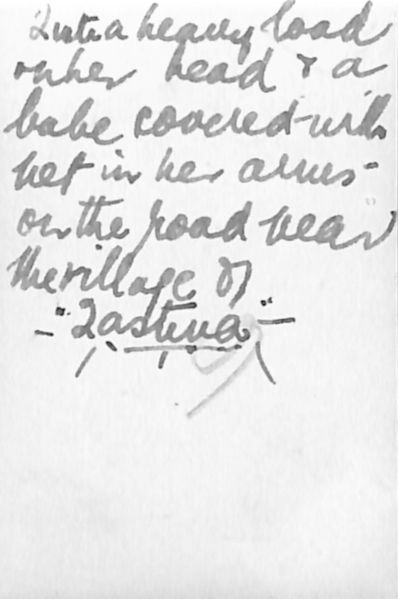 Quite a heavy load
on her head & a
babe covered with
net in her arms -
on the road near
the village of
- "Zastina" -